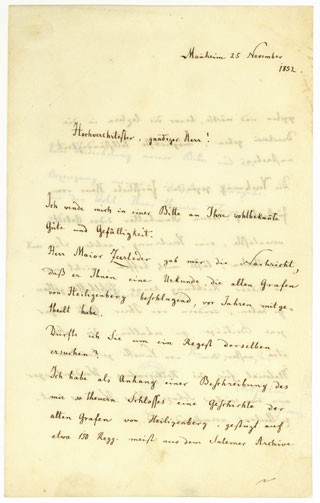 Manheim 25 November
1852.
Hochverehrtester, gnädiger Herr!
Ich wende mich in einer Bitte an Ihre wohlbekante
Güte und Gefälligkeit.
Herr Maior Zeerleder gab mir die Nachricht,
daß er Ihnen eine Urkunde die alten Grafen
von Heiligenberg beschlagend, vor Jahren mitge-
theilt habe.
Dürfte ich Sie um ein Regest derselben
ersuchen?
Ich habe als Anhang einer Beschreibung des
mir so theuern Schlosses eine Geschichte der
alten Grafen von Heiligenberg, gestüzt auf
etwa 150 Regg. meist aus dem Salemer Archive